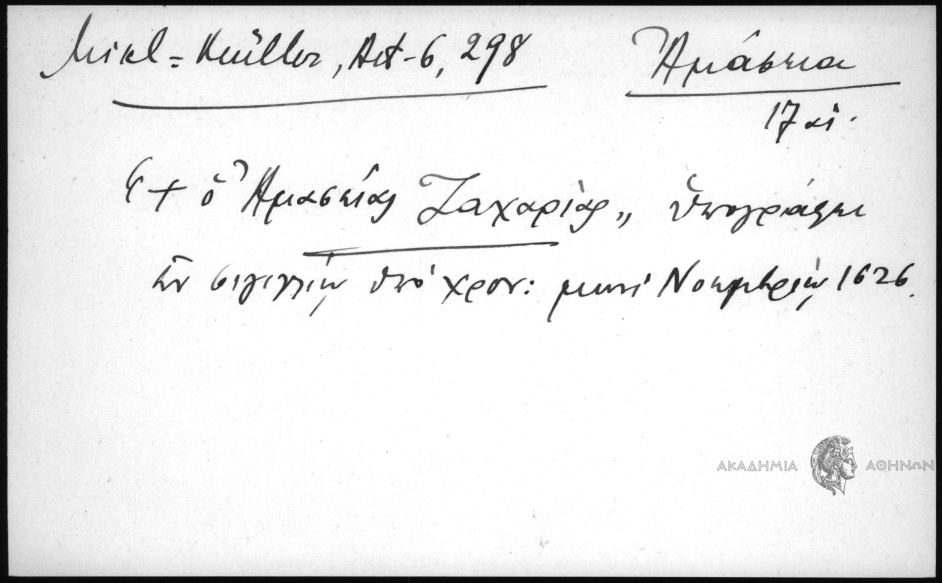 Mikl=Müller, Act-6, 298
Ἀμάσεια
17 αἰ.
"+ ὁ Ἀμασείας Ζαχαρίας„ ὑπογράφει
ἐν σιγιλλίῳ ὑπὸ χρον: μηνὶ Νοεμβρίῳ 1626.
ΑΚΑΔΗΜΙΑ ΑΘΗΝΩΝ